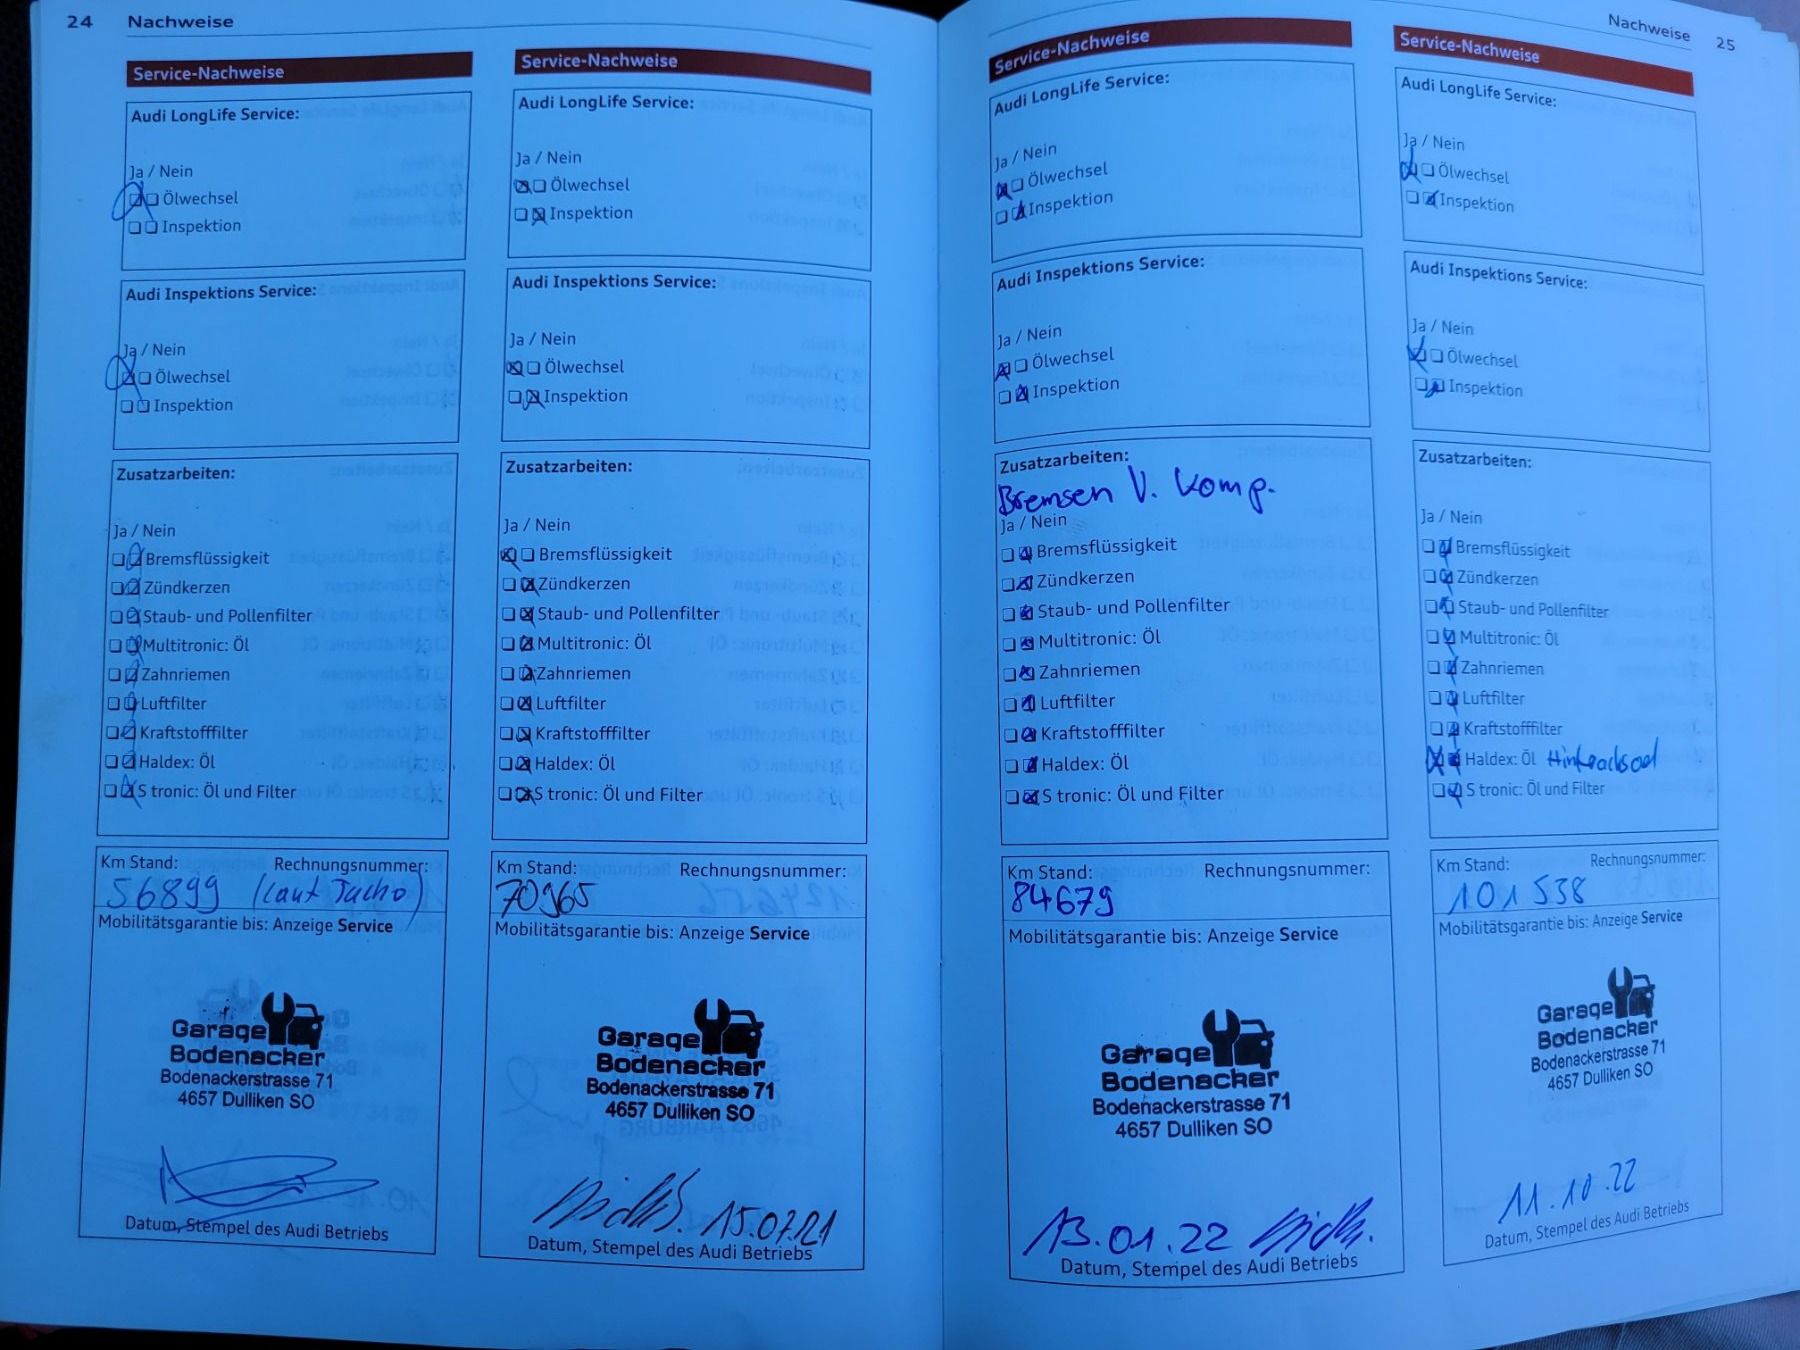 24 Nachweise
Service-Nachweise
Audi LongLife Service:
Ja / Nein
Ölwechsel
Inspektion
Audi Inspektions Service:
Ja / Nein
Ölwechsel
Inspektion
Zusatzarbeiten:
Ja / Nein
Bremsflüssigkeit
Zündkerzen
Staub- und Pollenfilter
Multitronic: Öl
Zahnriemen
Luftfilter
Kraftstofffilter
Haldex: Öl
S tronic: Öl und Filter
Km Stand: Rechnungsnummer:
56899 (laut Tacho)
Mobilitätsgarantie bis: Anzeige Service
Garage
Bodenacker
Bodenackerstrasse 71
4657 Dulliken SO
Datum, Stempel des Audi Betriebs
Service-Nachweise
Audi LongLife Service:
Ja / Nein
Ölwechsel
Inspektion
Audi Inspektions Service:
Ja / Nein
Ölwechsel
Inspektion
Zusatzarbeiten:
Ja / Nein
Bremsflüssigkeit
Zündkerzen
Staub- und Pollenfilter
Multitronic: Öl
Zahnriemen
Luftfilter
Kraftstofffilter
Haldex: Öl
S tronic: Öl und Filter
Km Stand: Rechnungsnummer:
70965
Mobilitätsgarantie bis: Anzeige Service
Garage
Bodenacker
Bodenackerstrasse 71
4657 Dulliken SO
15.07.21
Datum, Stempel des Audi Betriebs
Nachweise 25
Service-Nachweise
Audi LongLife Service:
Ja / Nein
Ölwechsel
Inspektion
Audi Inspektions Service:
Ja / Nein
Ölwechsel
Inspektion
Zusatzarbeiten:
Bremsen V. komp.
Ja / Nein
Bremsflüssigkeit
Zündkerzen
Staub- und Pollenfilter
Multitronic: Öl
Zahnriemen
Luftfilter
Kraftstofffilter
Haldex: Öl
S tronic: Öl und Filter
Km Stand: Rechnungsnummer:
84679
Mobilitätsgarantie bis: Anzeige Service
Garage
Bodenacker
Bodenackerstrasse 71
4657 Dulliken SO
13.01.22
Datum, Stempel des Audi Betriebs
Service-Nachweise
Audi LongLife Service:
Ja / Nein
Ölwechsel
Inspektion
Audi Inspektions Service:
Ja / Nein
Ölwechsel
Inspektion
Zusatzarbeiten:
Ja / Nein
Bremsflüssigkeit
Zündkerzen
Staub- und Pollenfilter
Multitronic: Öl
Zahnriemen
Luftfilter
Kraftstofffilter
Haldex: Öl
S tronic: Öl und Filter
Km Stand: Rechnungsnummer:
101538
Mobilitätsgarantie bis: Anzeige Service
Garage
Bodenacker
Bodenackerstrasse 71
4657 Dulliken SO
11.10.22
Datum, Stempel des Audi Betriebs